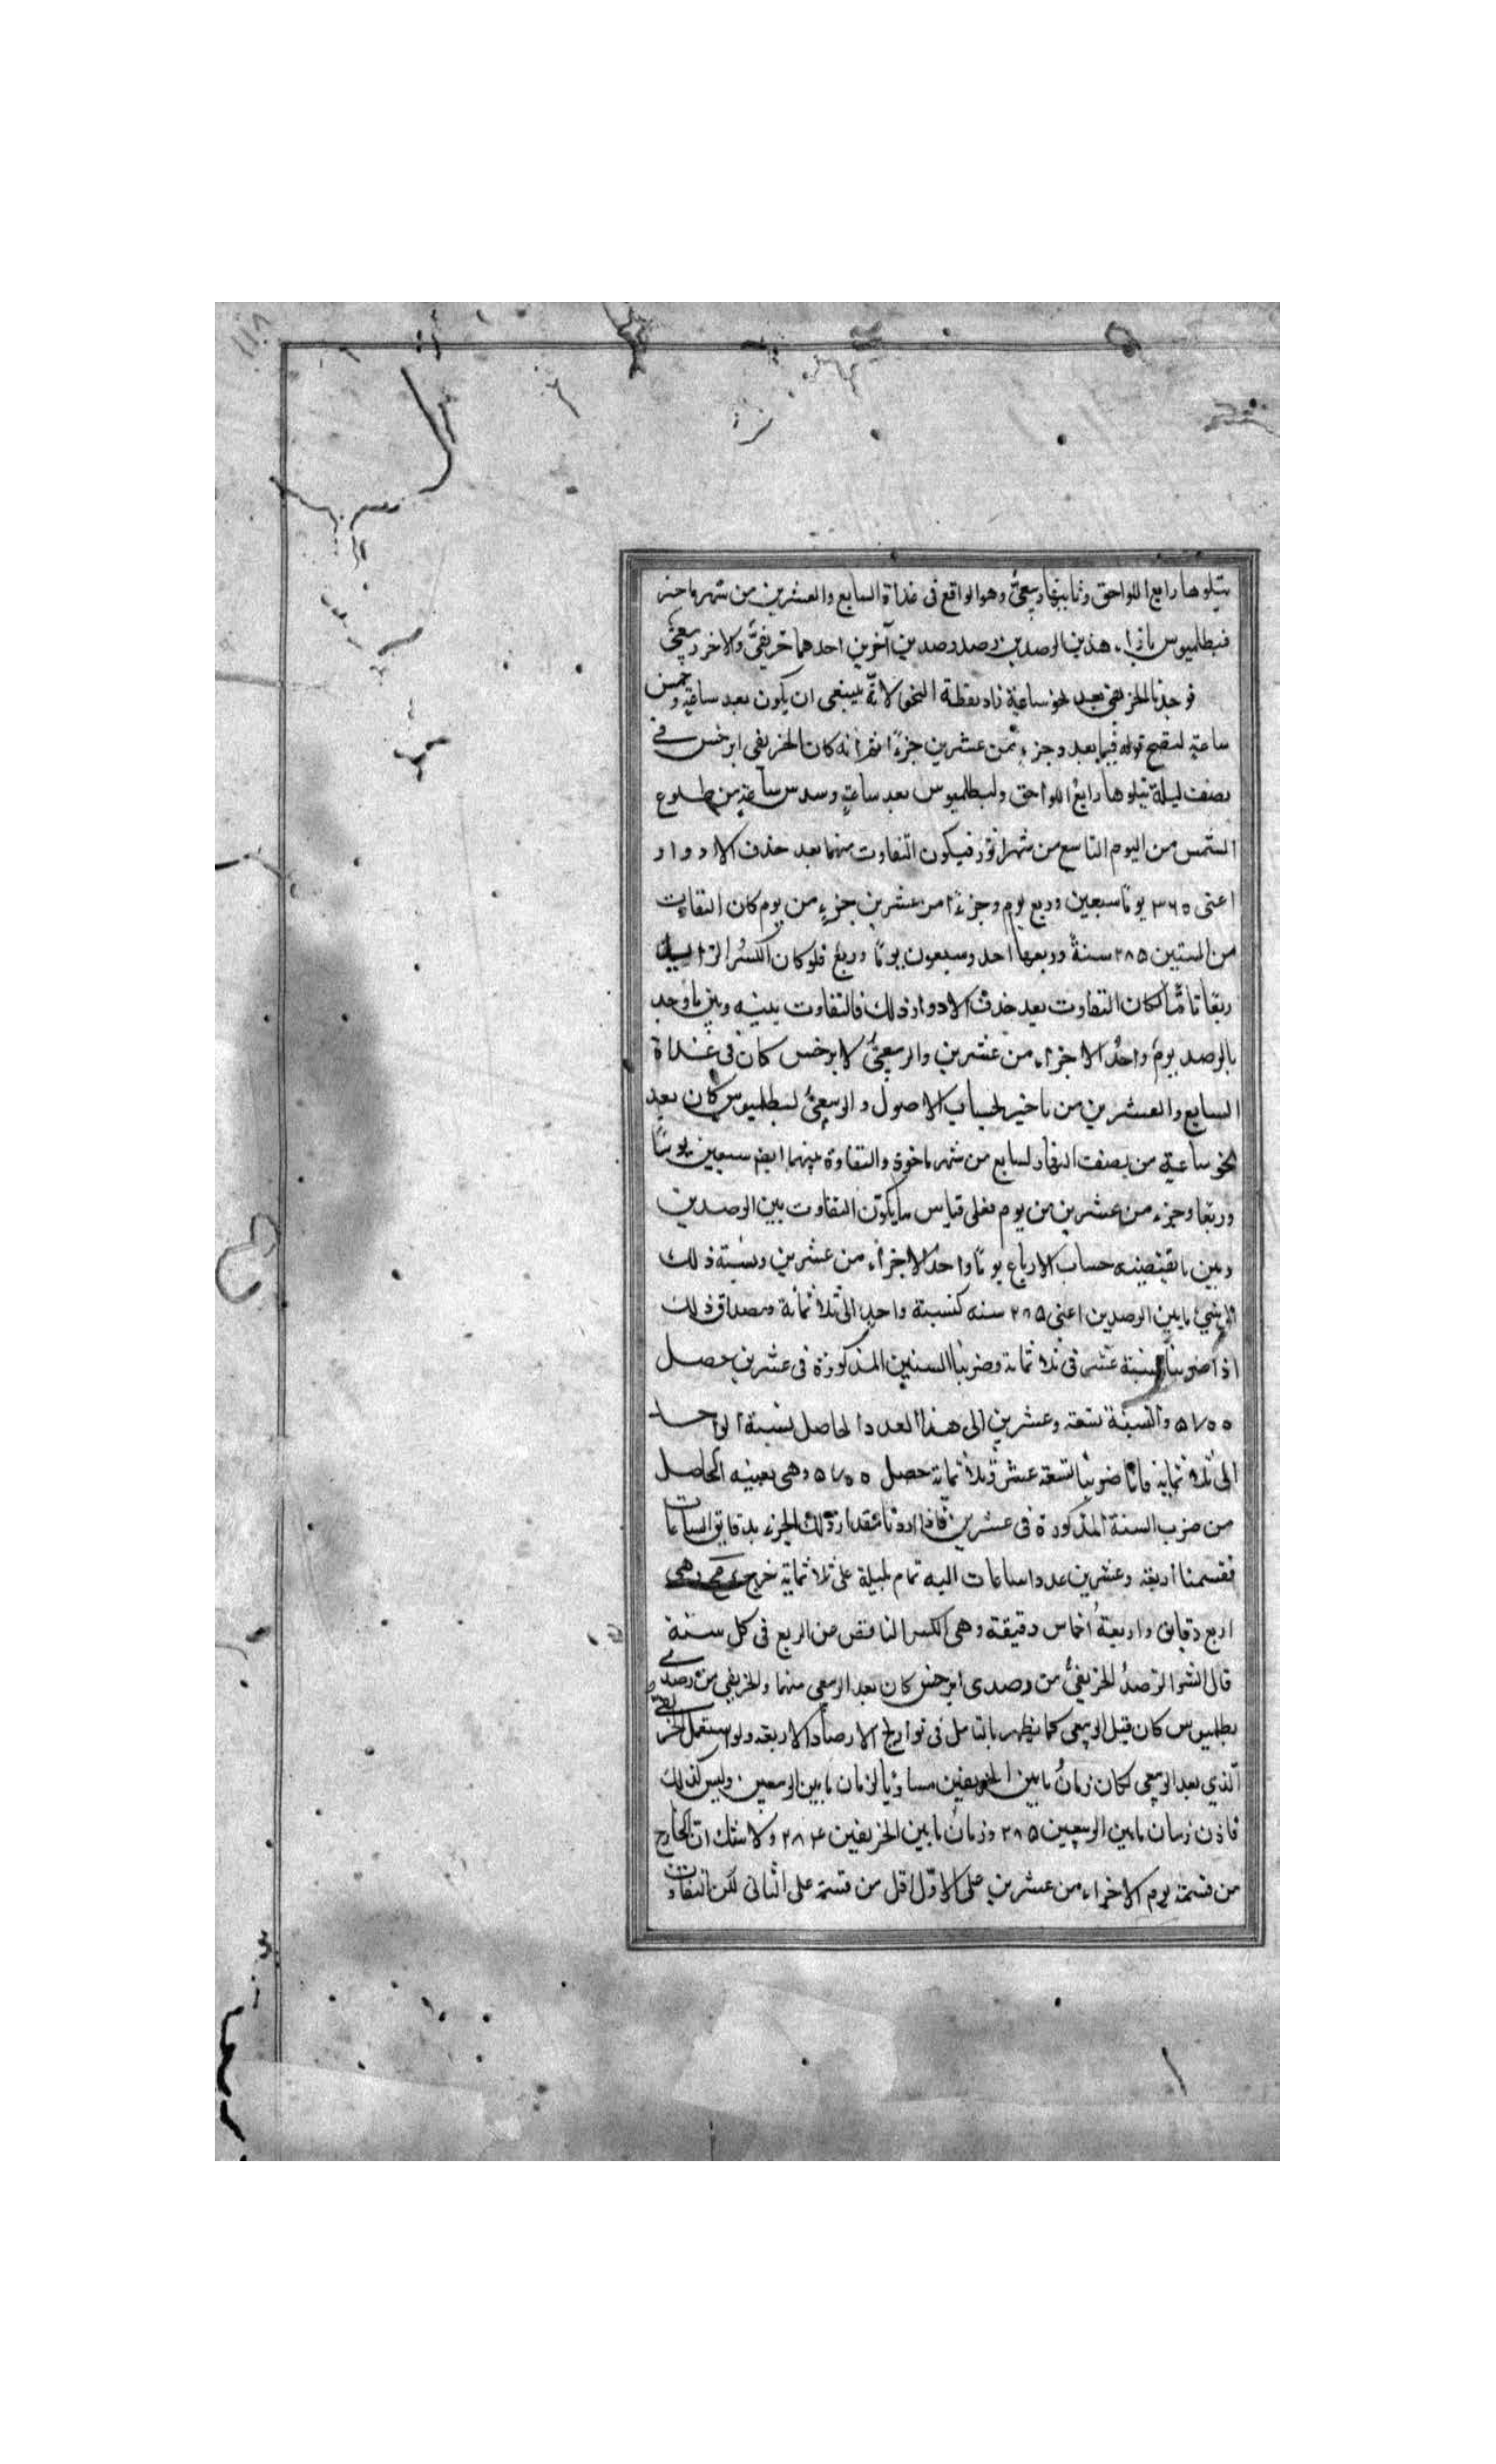 ١١٨
يتلوها رابع اللواحق وثانيها ربيعىّ وهو الواقع فى غداة السابع والعشرين من شهر ماخير
فبطلميوس بازاء هذين الرصدين رصد رصدين آخرين احدهما خريفىّ والاخر ربيعىّ
فوجدنا الخريفى بعد نحو ساعة زاد لفظة النحو لانّه ينبغى ان يكون بعد ساعة وخمس
ساعة ليصح قوله فيما بعد وجزء من عشرين جزءًا ثم انه كان الخريفى ابرخس فى
نصف ليلة يتلوها رابع اللواحق ولبطلميوس بعد ساعة وسدس ساعة من طلوع
الشمس من اليوم التاسع من شهر اثور فيكون التفاوت بينهما بعد حذف الادوار
اعنى ٣٦٥ يومًا سبعين وربع يوم وجزءًا من عشرين جزءٍ من يوم كان التفاوت
من السنين ٢٨٥ سنةً وربعها احد وسبعون يومًا وربع فلو كان الكسر الزائد
ربعًا تامًّا لكان التفاوت بعد حذف الادوار ذلك فالتفاوت بينه وبين ما وجد
بالرصد يومٌ واحدٌ الا جزء من عشرين والربيعىّ لابرخس كان فى غداة
السابع والعشرين من ماخير لحساب الاصول والربيعىّ لبطلميوس كان بعد
نحو ساعة من نصف النهار لسابع من شهر ماخون والتفاوة بينهما ايضا سبعين يومًا
وربعًا وجزء من عشرين من يوم فعلى قياس ما يكون التفاوت بين الرصدين
وبين ما تقتضيه حساب الارباع يومًا واحدًا الا جزء من عشرين ونسبة ذلك
الى شىء ما بين الرصدين اعنى ٢٨٥ سنه كنسبة واحدٍ الى ثلاثمأة ومصداق ذلك
اذا ضربنا تسعة عشر فى ثلاثماية وضربنا السنين المذكورة فى عشرين حصل
٥٧٠٠ والنسبة تسعة وعشرين الى هذا العدد الحاصل نسبة الواحد
الى ثلاثمايه فانا ضربنا تسعة عشر فى ثلاثماية حصل ٥٧٠٠ وهى بعينه الحاصل
من ضرب السنة المذكورة فى عشرين فاذا اردنا مقدار ذلك الجزء بدقايق الساعات
فقسمنا اربعة وعشرين عدد ساعات اليوم تمام بليلة على ثلاثماية خرج د مح وهى
اربع دقايق واربعةُ اخماس دقيقة وهى الكسر الناقص من الربع فى كل سنة
قال الشر الرصدُ الخريفىُّ من رصدى ابرخس كان بعد الربيعى منهما والخريفى من رصدى
بطلميوس كان قبل الربيعى كما يظهر بالتامل فى تواريخ الارصاد الاربعة ولو استعمل الخريفى
الذي بعد الربيعى لكان زمانُ ما بين الخريفين مساويًا لزمان ما بين الربيعين وليس كذلك
فاذن زمان ما بين الربيعين ٢٨٥ وزمان ما بين الخريفين ٢٨٤ ولا شك ان الخارج
من قسمة يوم الا جزء من عشرين على الاول اقل من قسمة على الثانى لكن التفاوت